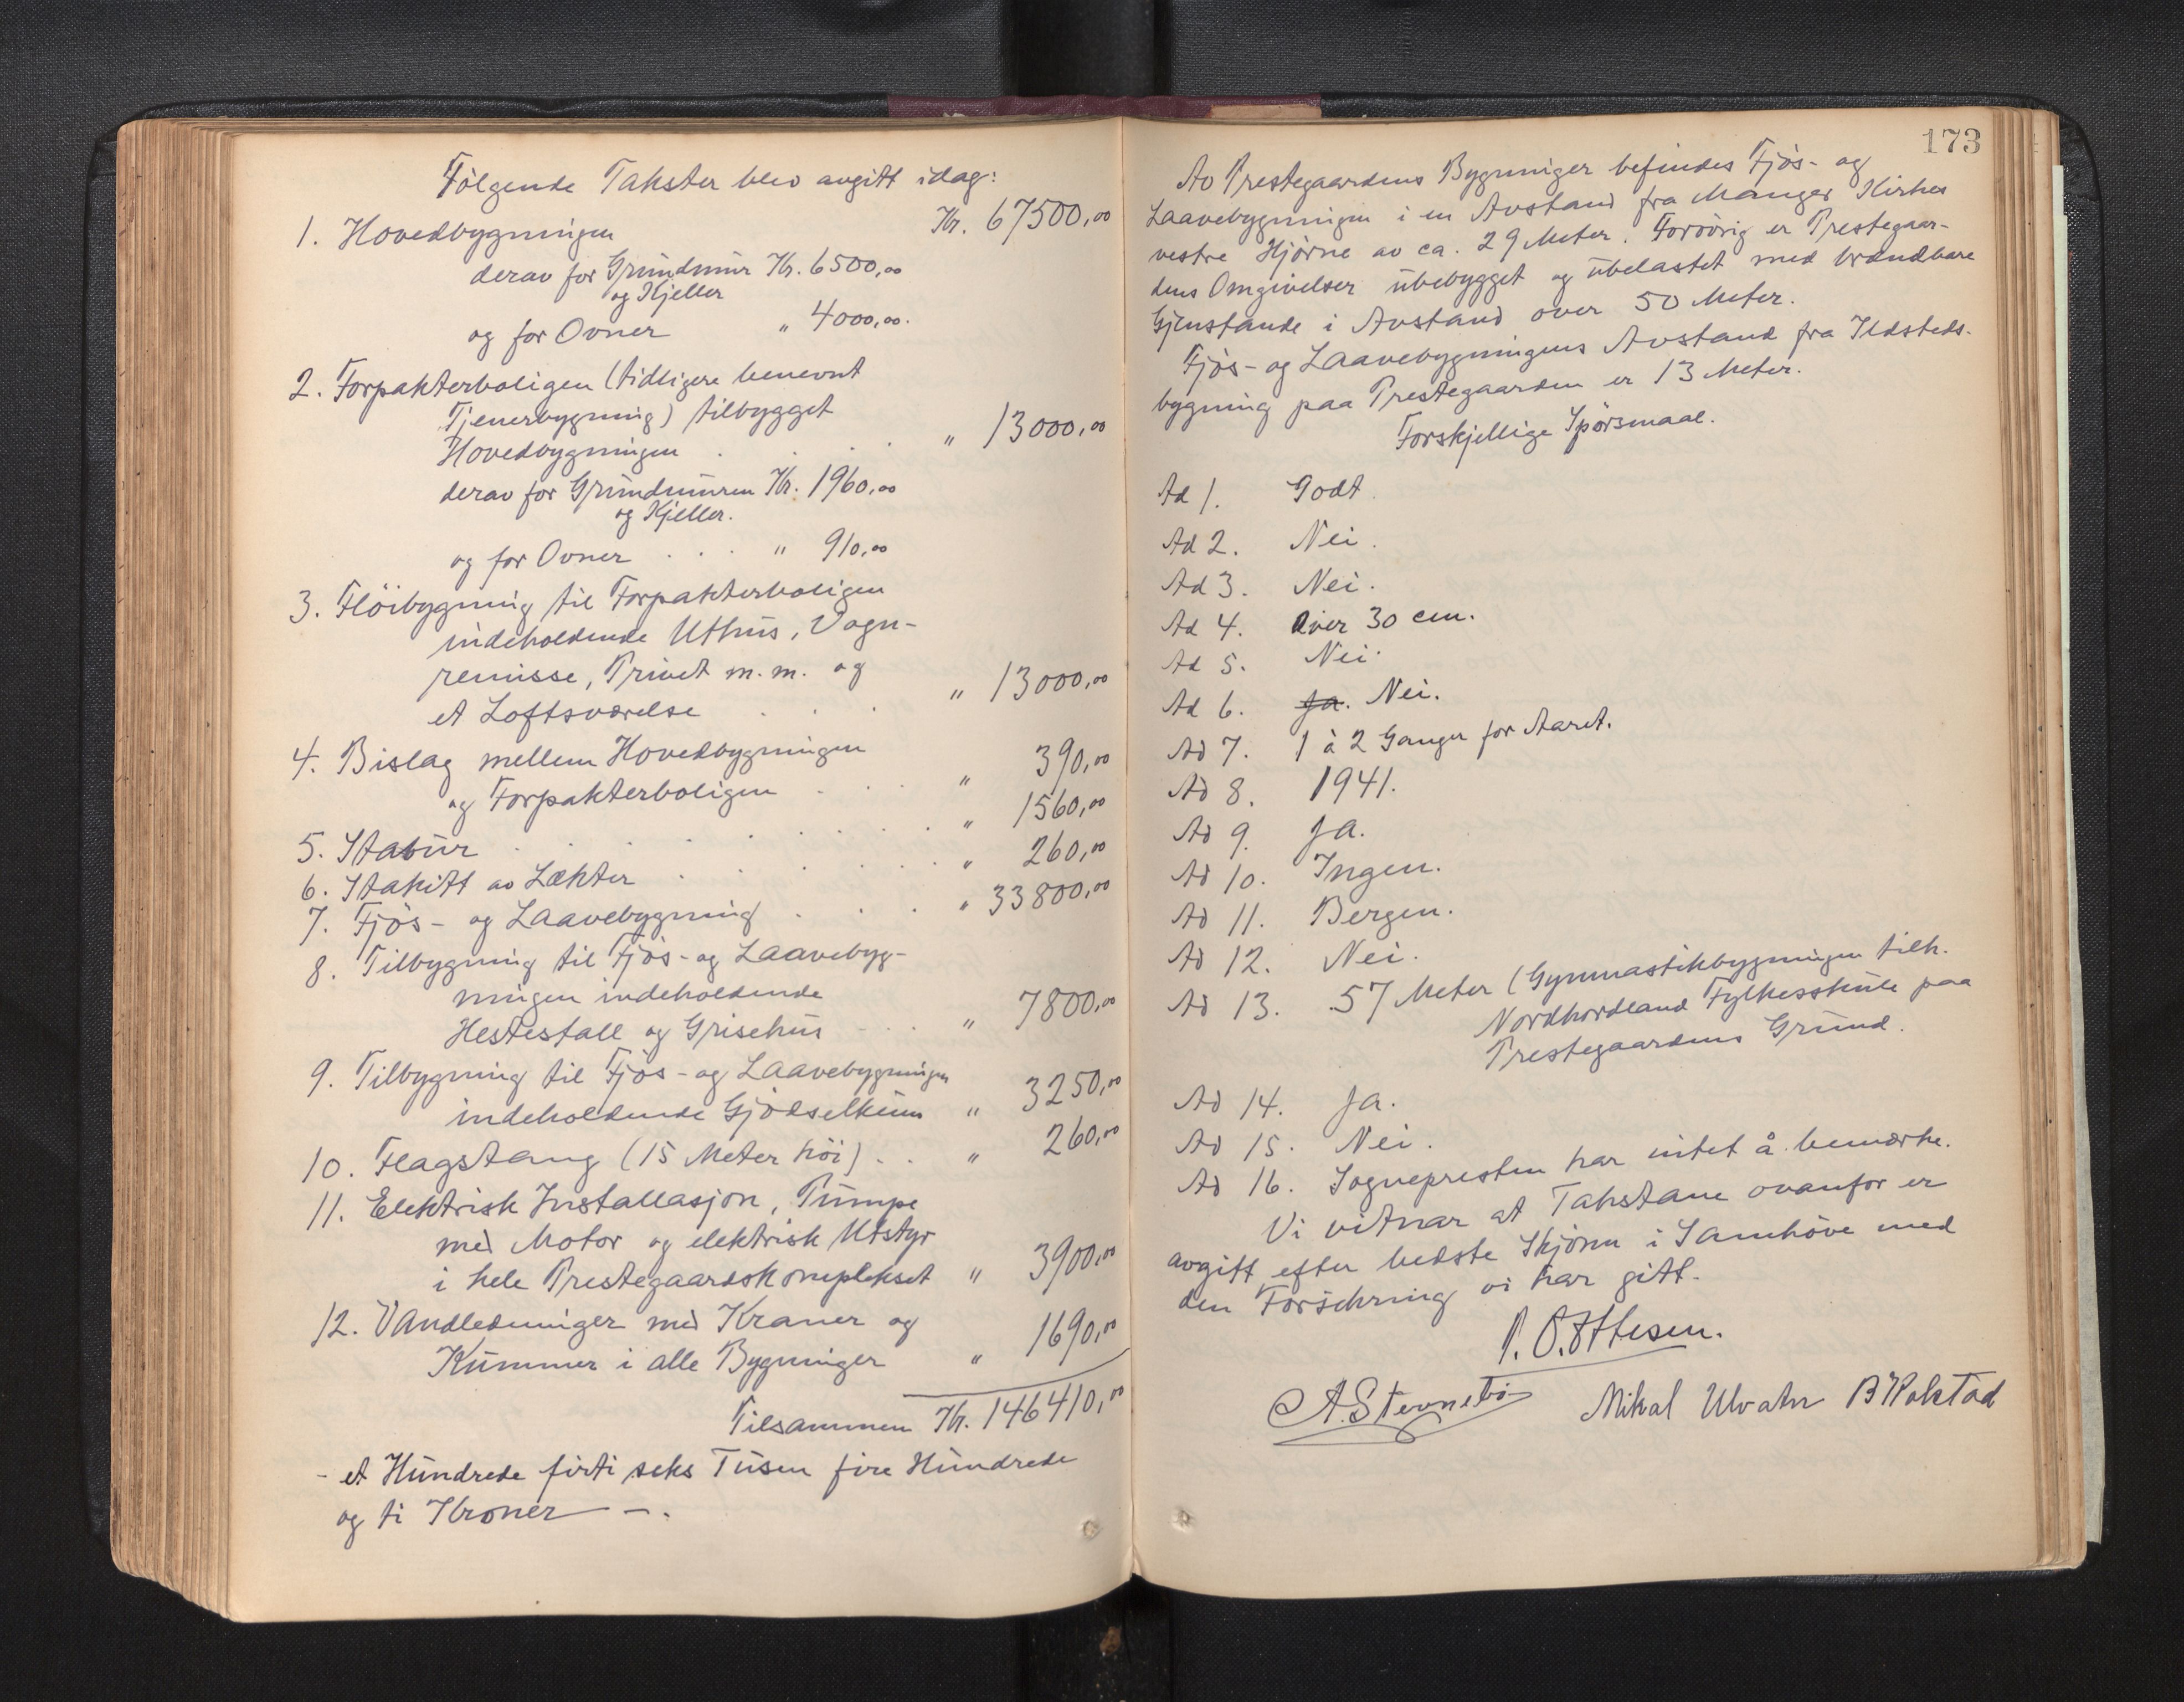 Følgende Takster blev avgitt idag:
1. Hovedbygningen Kr. 67500,00
derav for Grundmur Kr. 6500,00
og Kjeller
og for Ovner " 4000,00.
2. Forpakterboligen (tidligere benevnt
Tjenerbygning) tilbygget
Hovedbygningen . . . " 13000,00
derav for Grundmuren Kr. 1960,00
og Kjeller.
og for Ovner . . . " 910,00
3. Fløibygning til Forpakterboligen
indeholdende Uthus, Vogn-
remisse, Privet m.m. og
et Loftsværelse . . . " 13000,00
4. Bislag mellem Hovedbygningen
og Forpakterboligen . . . " 390,00
5. Stabur . . . . . . . " 1560,00
6. Stakitt av Lækter . . . . . " 260,00
7. Fjøs- og Laavebygning . . . " 33800,00
8. Tilbygning til Fjøs- og Laavebyg-
ningen indeholdende
Hestestall og Grisehus . . . " 7800,00
9. Tilbygning til Fjøs- og Laavebygningen
indeholdende Gjødselkum " 3250,00
10. Flagstang (15 Meter høi) . . " 260,00
11. Elektrisk Installasjon, Pumpe
med Motor og elektrisk Utstyr
i hele Prestegaardskomplekset " 3900,00
12. Vandledninger med Kraner og
Kummer i alle Bygninger " 1690,00
Tilsammen Kr. 146410,00
- et Hundrede firti seks Tusen fire Hundrede
og ti Kroner — .
173
Av Prestegaardens Bygninger befindes Fjøs- og
Laavebygningen i en Avstand fra Manger Kirkes
vestre Hjørne av ca. 29 Meter. Forøvrig er Prestegaar-
dens Omgivelser ubebygget og ubelastet med brændbare
Gjenstande i Avstand over 50 Meter.
Fjøs- og Laavebygningens Avstand fra Ildsteds-
bygning paa Prestegaarden er 13 Meter.
Forskjellige Spørsmaal.
Ad 1. Godt.
Ad 2. Nei.
Ad 3. Nei.
Ad 4. Over 30 cm.
Ad 5. Nei.
Ad 6. Ja. Nei.
Ad 7. 1 à 2 Ganger for Aaret.
Ad 8. 1941.
Ad 9. Ja.
Ad 10. Ingen.
Ad 11. Bergen.
Ad 12. Nei.
Ad 13. 57 Meter (Gymnastikbygningen tilh.
Nordhordland Fylkesskule paa
Prestegaardens Grund.
Ad 14. Ja.
Ad 15. Nei.
Ad 16. Sognepresten har intet å bemærke.
Vi vitnar at Takstane ovanfor er
avgitt efter bedste Skjønn i Samhøve med
den Forsikring vi har gitt.
P. O. Ottesen.
A. Stevnebø Mikal Ulvatn B Kolstad